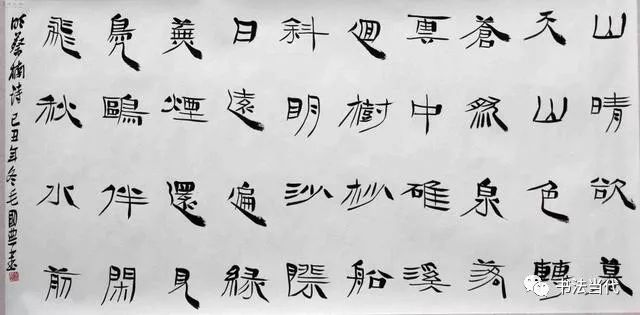 山晴欲暮
天山色轉
蒼然泉落
雲中碓溪
迴樹杪船
斜明沙際
日遠遍緑
蕪煙還見
鳧鷗伴閑
飛秋水前
明蔡楠詩 己丑年冬毛國典書
书法当代